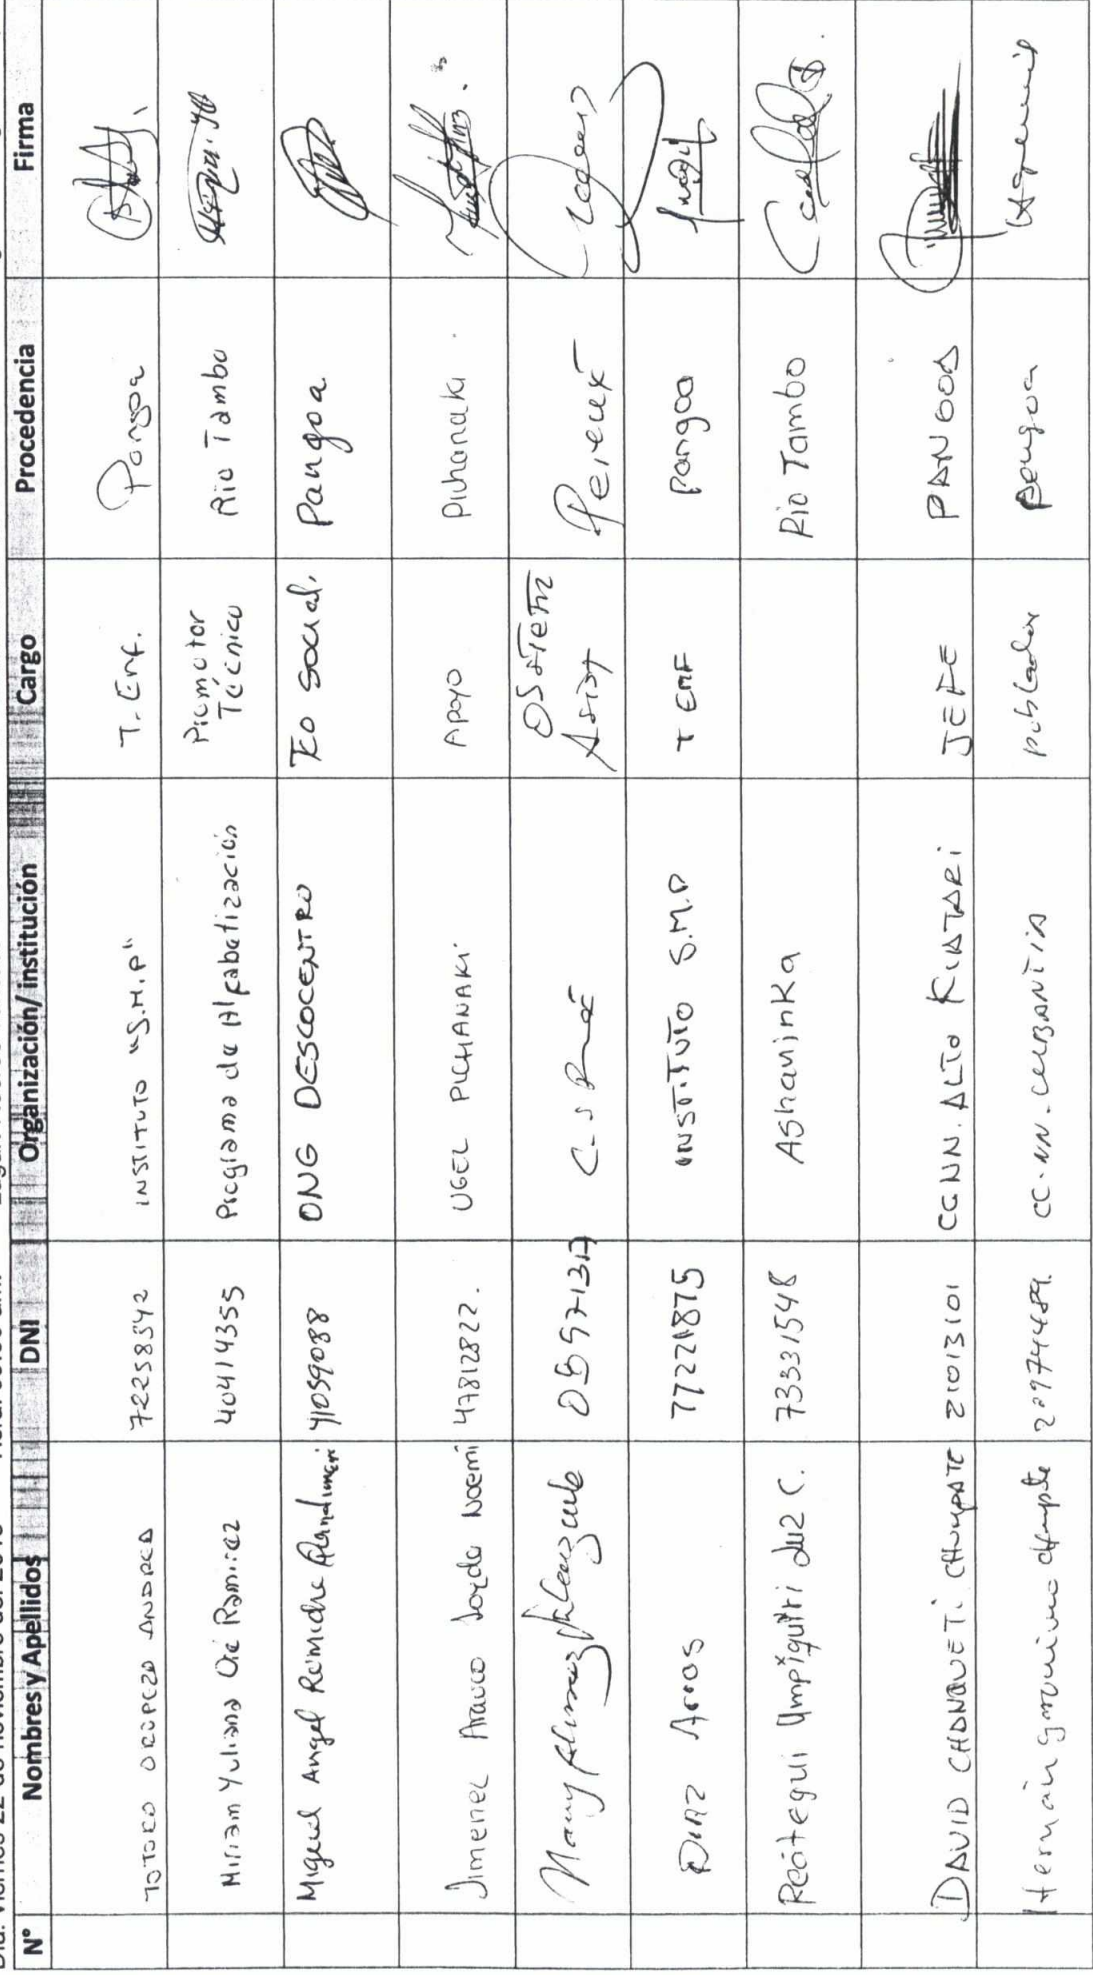 N° Nombres y Apellidos DNI Organización/ institución Cargo Procedencia Firma
TOTORO OROPEZA ANDREA 72258542 INSTITUTO "S.M.P" T. Enf. Pangoa
Miriam Yuliana Oré Ramirez 40414355 Programa de Alfabetización Promotor Técnico Rio Tambo
Miguel Angel Remiche 41059088 ONG DESCOCENTRO TCO Social. Pangoa
Jimenez Arauco Noemi 47812822. UGEL PICHANAKI Apoyo Pichanaki
C.S Perené
DIAZ Arcos 77221875 INSTITUTO S.M.P Pangoa
Reátegui Umpiquiri Luz C. 73331548 Ashaninka Rio Tambo
DAVID CHONQUETI CHUMPATE 21013101 CCNN. ALTO KIATARI JEFE PANGOA
Hernán 20974489. CC.NN. poblador Pangoa